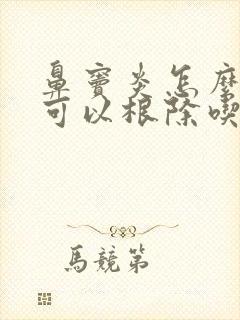 鼻竇炎怎麼
可以根除喫
馬競第